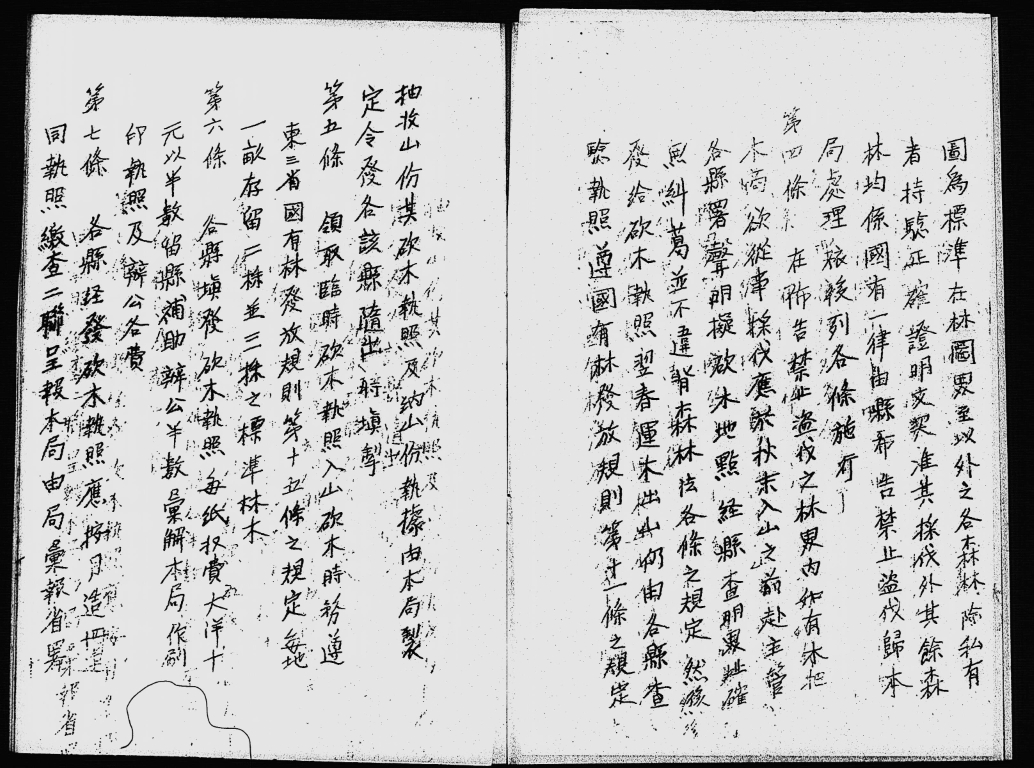 圖為標準在林圖界至以外之各森林除私有
者持驗正確證明文契准其採伐外其餘森
林均係國有一律由縣布告禁止盜伐歸本
局處理茲將列各條施行
第四條　在佈告禁止盜伐之林界內如有木把
木商欲從事採伐應於秋末入山之前赴主管
各縣署聲明擬砍木地點經縣查明界址確
無糾葛並不違背森林法各條之規定然後
發給砍木執照翌春運木出山仍由各縣查
驗執照遵國有林發放規則第十一條之規定
抽收山份其砍木執照及納山份執據由本局製
定令發各該縣隨出時填掣
第五條　領取臨時砍木執照入山砍木時務遵
東三省國有林發放規則第十五條之規定每地
一畝存留二株並三株之標準林木
第六條　各縣填發砍木執照每紙收費大洋十
元以半數留縣補助辦公半數彙解本局作刷
印執照及辦公各費
第七條　各縣經發砍木執照應按月造四連
同執照繳查二聯呈報本局由局彙報省署